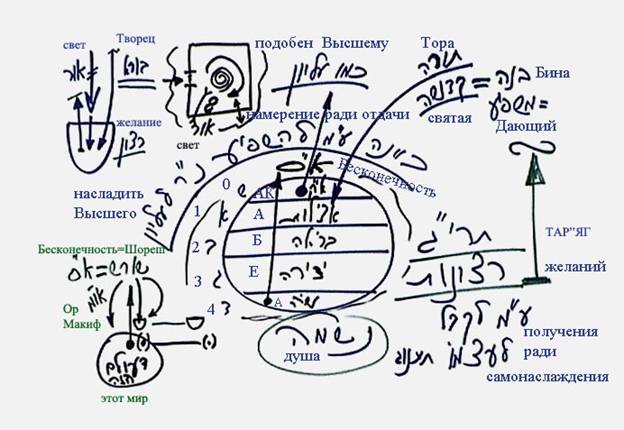 свет
Творец
подобен Высшему
Тора
אור
בורא
כמו עליון
תורה
קדושה = בינה Бина
משפיע =
святая
Дающий
желание
רצון
свет
אור
намерение ради отдачи
насладить
Высшего
א"ס
Бесконечность
0 ש АК א"ק
1 א А אצילות
2 ב Б בריאה
3 ג Е יצירה
4 ד А עשיה
תרי"ג
רצונות
ТАР"ЯГ
желаний
ע"מ לקבל
לעצמו
получения
ради
самонаслаждения
נשמה
душа
Бесконечность=Шореш
שורש=א"ס
או"מ
Ор
Макиф
העולם
הזה
этот мир